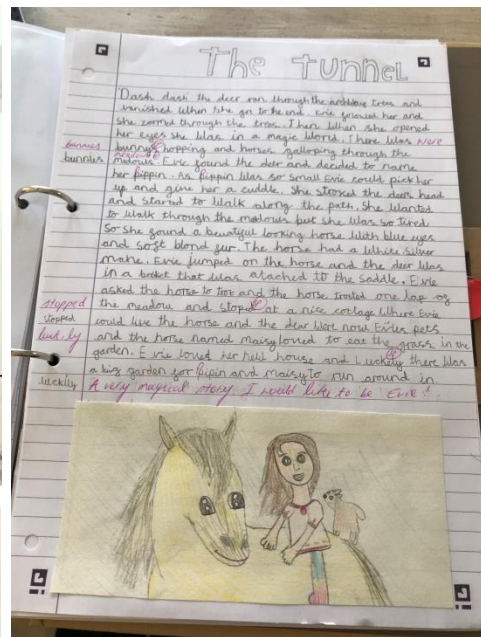 The tunnel
Dash dash the deer ran through the archbow trees and
vanished when she got to the end. Evie followed her and
she zoomed through the trees. Then when she opened
her eyes she was in a magic world. There was were
bunnies bunnys hopping and horses galloping through the
bunnies meadows madows. Evie found the deer and decided to name
her pippin. As pippin was so small Evie could pick her
up and give her a cuddle. She stroked the deers head
and started to walk along the path. She wanted
to walk through the madows but she was so tired
So she found a beautiful looking horse with blue eyes
and soft blond fur. The horse had a white silver
mane. Evie jumped on the horse and the deer was
in a basket that was atached to the saddle. Evie
asked the horse to trot and the horse troted one lap of
stopped the meadow and stoped at a nice cottage where Evie
stopped could live the horse and the dear were now Evies pets
luck-ly and the horse named maisy loved to eat the grass in the
garden. Evie loved her new house and Luckely there was
luckily a big garden for Pipin and maisy to run around in.
A very magical story I would like to be Evie!